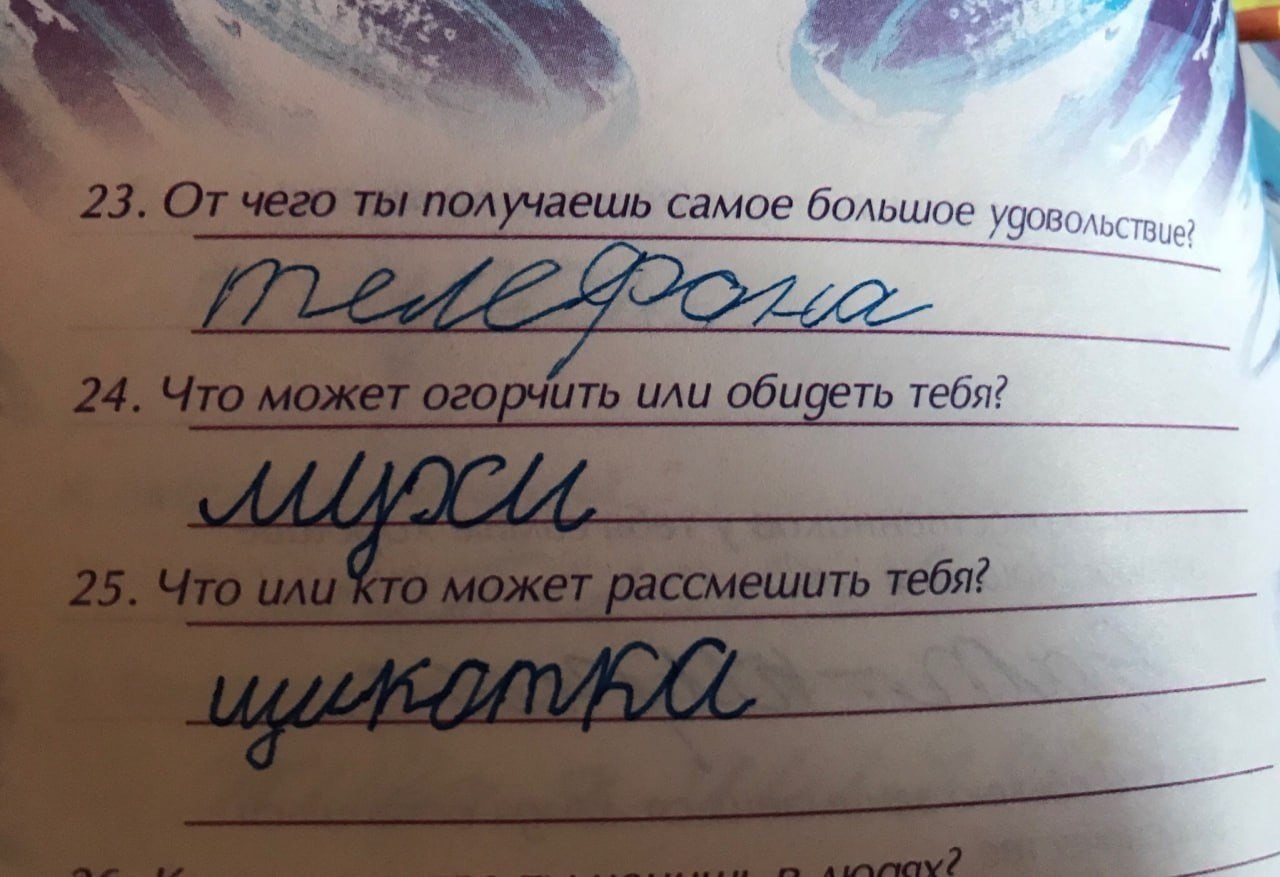 23. От чего ты получаешь самое большое удовольствие?
телефона
24. Что может огорчить или обидеть тебя?
мухи
25. Что или кто может рассмешить тебя?
щикотка
26. К ты ценишь в людях?